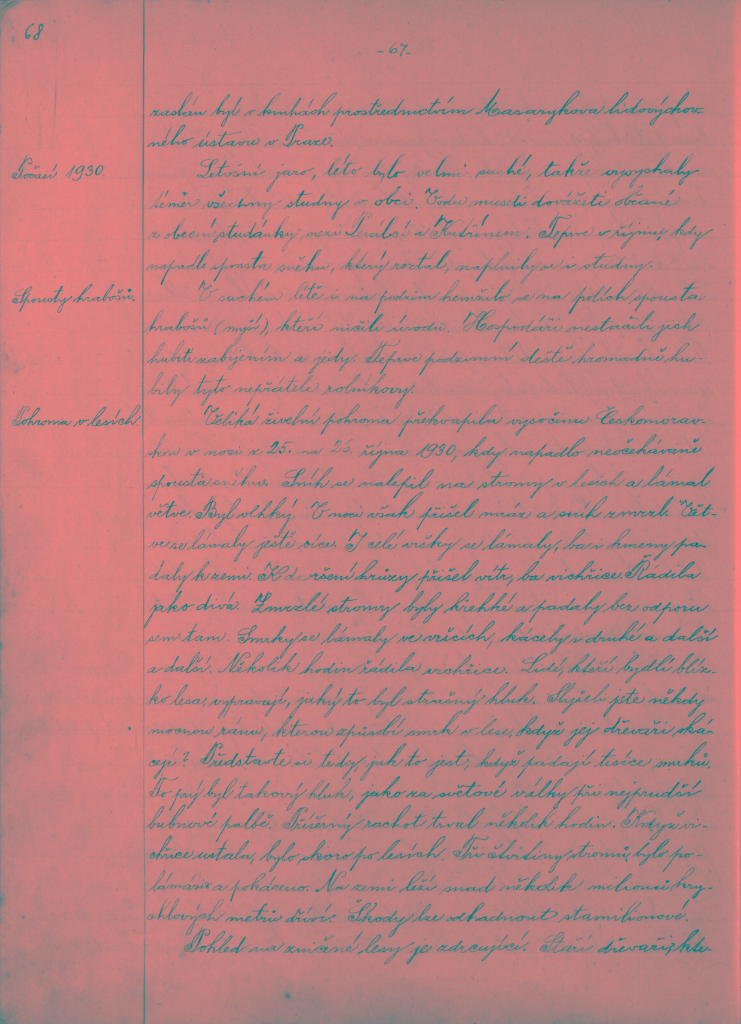 68
- 67 -
zaslán byl v knihách prostřednictvím Masarykova lidovýchov-
ného ústavu v Praze.
Počasí 1930.
Letošní jaro, léto bylo velmi suché, takže vysychaly
téměř všechny studny v obci. Vodu museli dovážeti občané
z obecní studánky mezi a Kutřínem. Teprve v říjnu, kdy
napadlo spousta sněhu, který roztál, naplnily se i studny.
Spousty hrabošů.
V suchém létě i na podzim hemžilo se na polích spousta
hrabošů (myší), kteří ničili úrodu. Hospodáři nestačili jich
hubiti zabíjením a jedy. Teprve podzimní deště hromadně hu-
bily tyto nepřátele rolníkovy.
Pohroma v lesích.
Veliká živelní pohroma překvapila vysočinu Českomorav-
skou v noci z 25. na 26. října 1930, kdy napadlo neočekávaně
spousta sněhu. Sníh se nalepil na stromy v lesích a lámal
větve. Byl vlhký. V noci však přišel mráz a sníh zmrzl. Vět-
ve se lámaly ještě více. I celé vršky se lámaly, ba i kmeny pa-
daly k zemi. K dovršení hrůzy přišel vítr, ba vichřice. Řádila
jako divá. Zmrzlé stromy byly křehké a padaly bez odporu
sem tam. Smrky se lámaly ve vršcích, kácely i druhé a další
a další. Několik hodin řádila vichřice. Lidé, kteří bydlí blíz-
ko lesa, vypravují, jaký to byl strašný hluk. Slyšeli jste někdy
mocnou ránu, kterou způsobí smrk v lese, když jej dřevaři ská-
cejí? Představte si tedy jak to jest, když padají tisíce smrků.
To prý byl takový hluk, jako za světové války při nejprudší
bubnové palbě. Příšerný rachot trval několik hodin. Když vi-
chřice ustala, bylo skoro po lesích. Tři čtvrtiny stromů bylo po-
lámáno a pokáceno. Na zemi leží snad několik milionů kry-
chlových metrů dříví. Škody lze odhadnout stamilionové.
Pohled na zničené lesy je zdrcující. Staří dřevaři, kte-